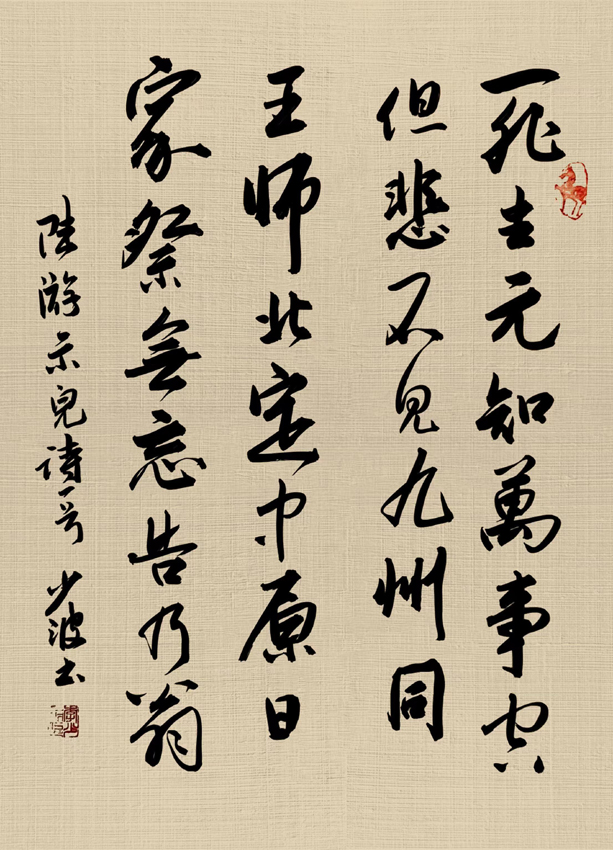 死去元知萬事空
但悲不見九州同
王师北定中原日
家祭無忘告乃翁
陆游示兒诗一首 少波书